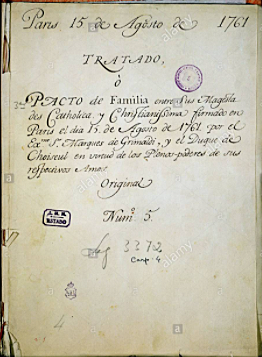 Paris 15 de Agosto de 1761
TRATADO,
ò
3.^o PACTO de Familia entre Sus Magesta
des Catholica, y Christianissima firmado en
Paris el dia 15. de Agosto de 1761. por el
Ex.mo S.r Marques de Grimaldi, y el Duque de
Choiseul en virtud de los Plenos-poderes de sus
respectivos Amos.
Original
Núm.º 5
A.H.N.
ESTADO
Leg 3372
Carp: 4
4
alamy